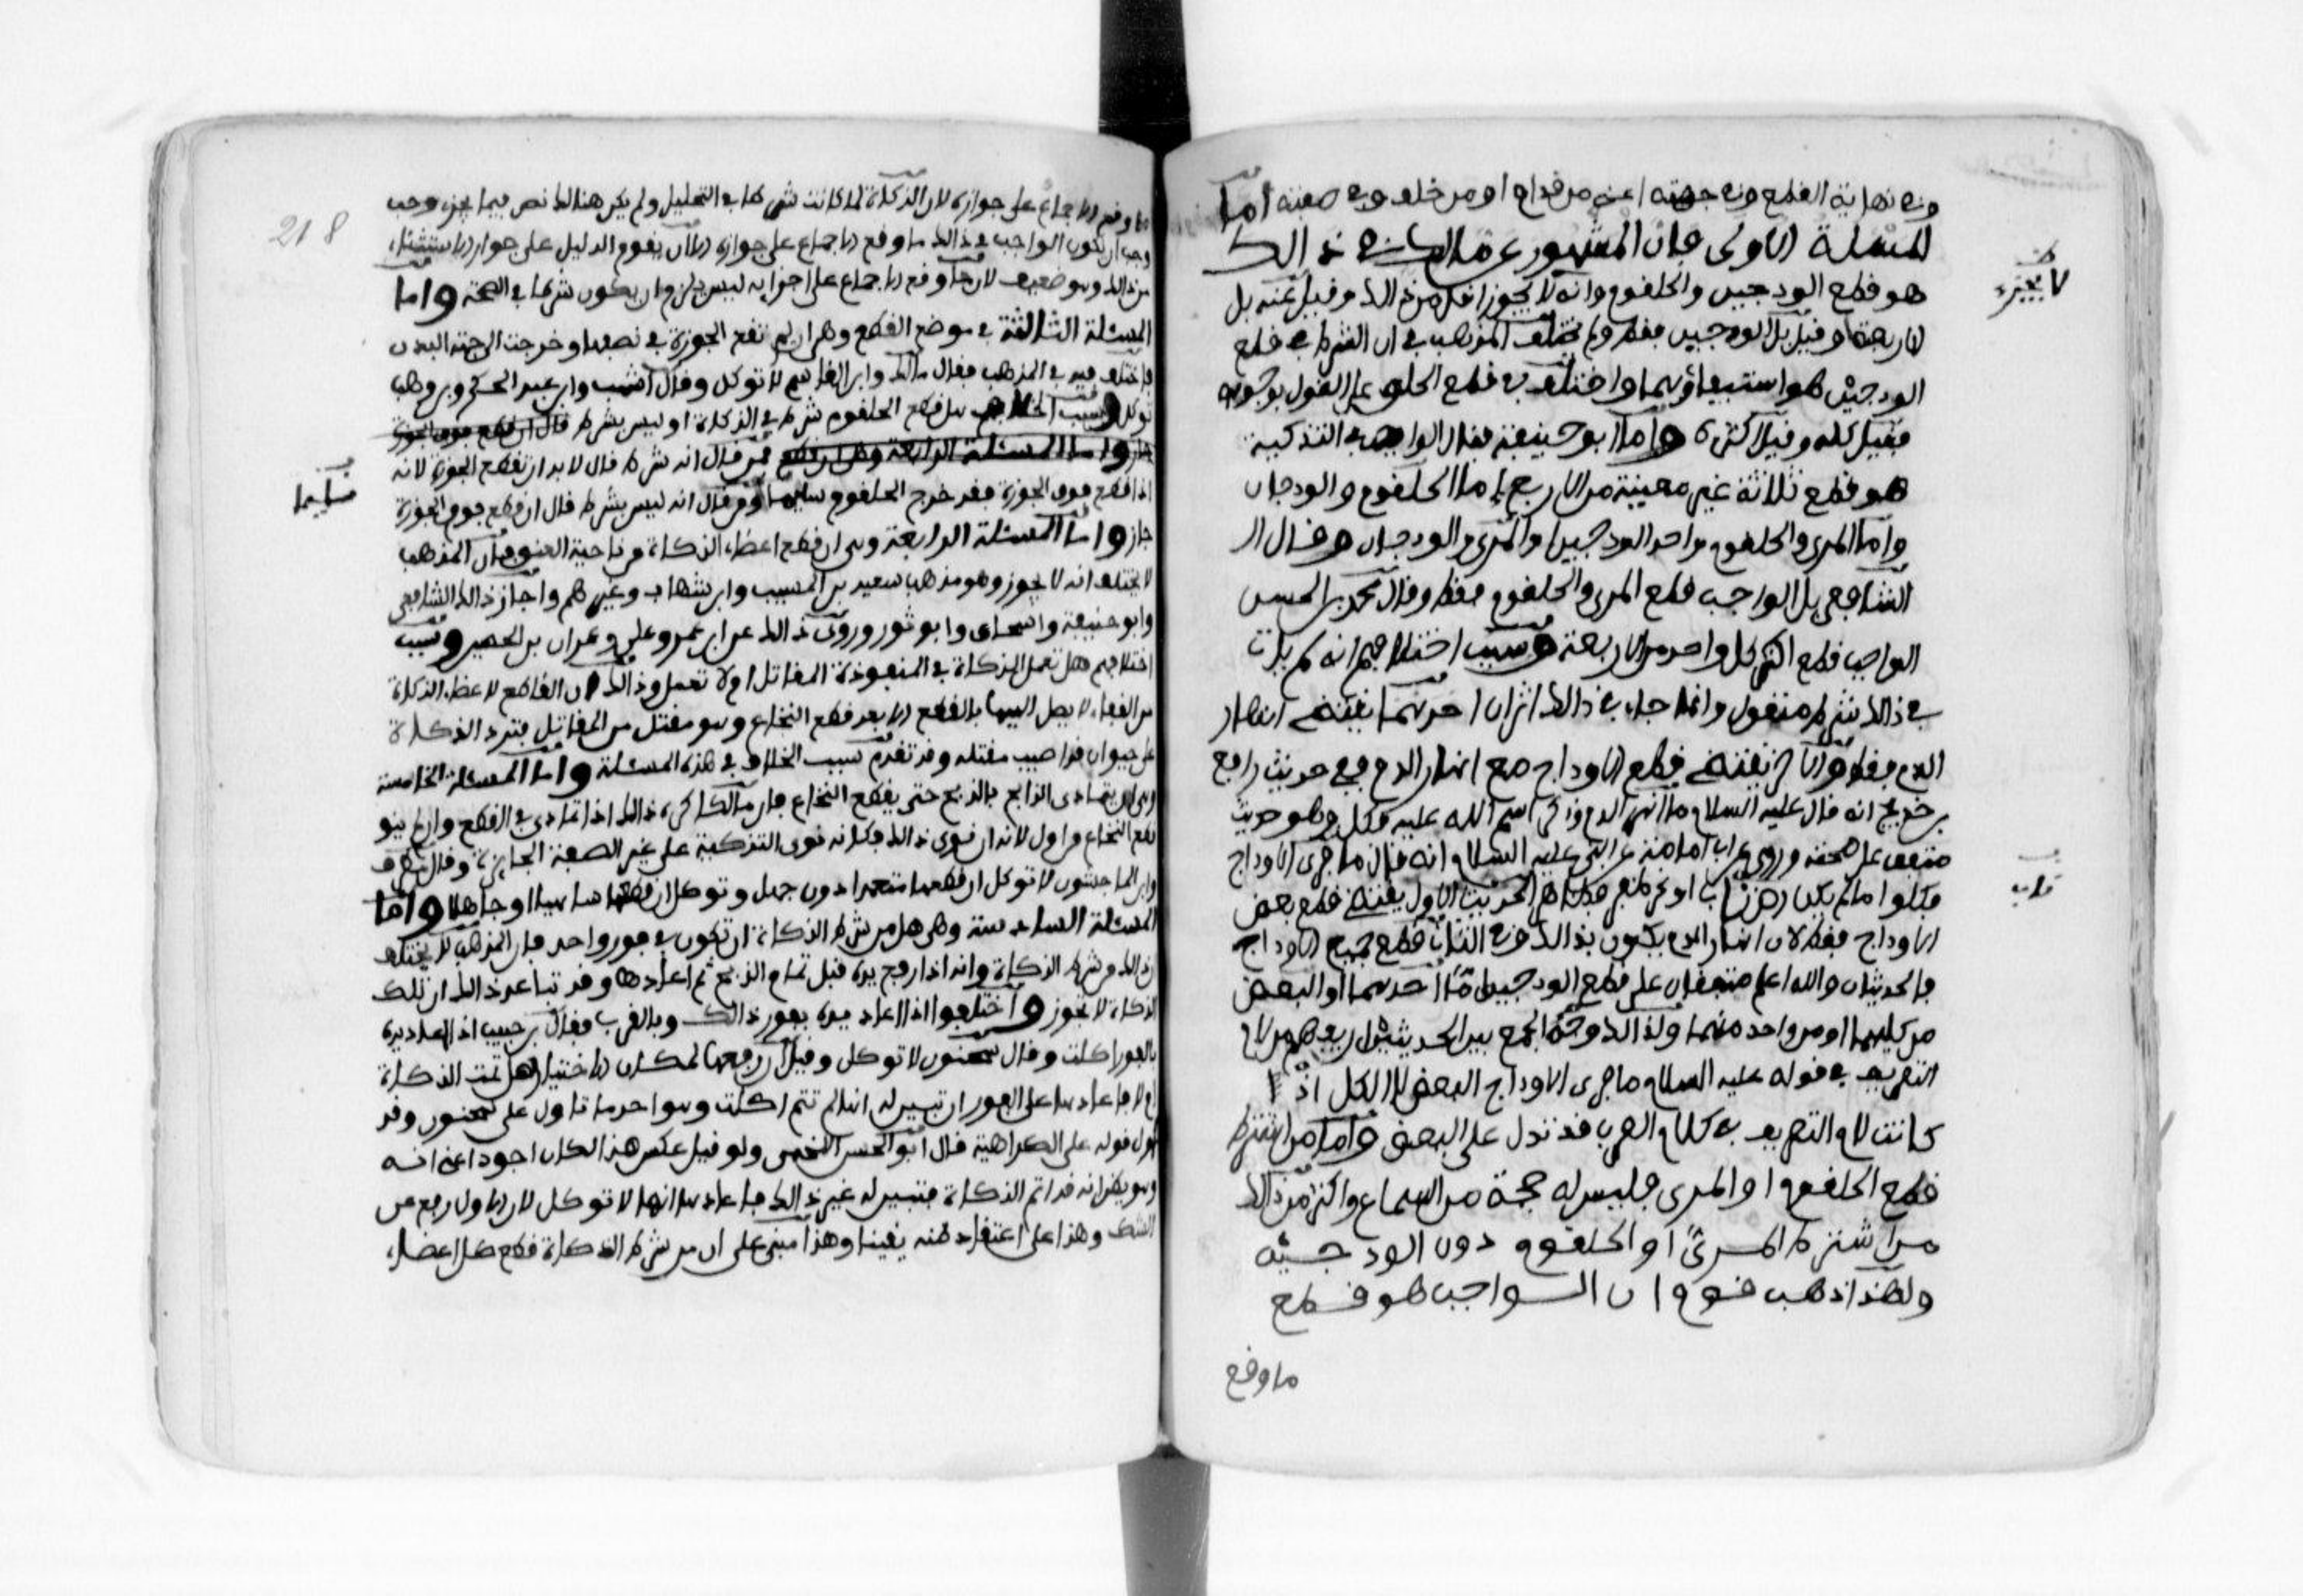 وفي نهاية القطع وفي جهته اعني من قدام او من خلف وفي صفته اما
المسئلة الاولى فان المشهور عن مالك في ذالك
هو قطع الودجين والحلقوم وانه لا يجوز اقل من ذالك وقيل عنه بل
الاربعة وقيل بل الودجين فقط ولم يختلف المذهب في ان الشرط في قطع
الودجين هو استيفاؤهما واختلف في قطع الحلقوم على القول بوجوبه
فقيل كله وقيل اكثره واما ابو حنيفة فقال الواجب في التذكية
هو قطع ثلاثة غير معينة من الاربع اما الحلقوم والودجان
واما المرئ والحلقوم واحد الودجين او المرئ والودجان وقال
الشافعي بل الواجب قطع المرئ والحلقوم فقط وقال محمد بن الحسن
الواجب قطع اكثر كل واحد من الاربعة وسبب اختلافهم انه لم يات
في ذالك شرط منقول وانما جاء في ذالك اثران احدهما يقتضي انهار
الدم فقط والاخر يقتضي قطع الاوداج مع انهار الدم ففي حديث رافع
بن خديج انه قال عليه السلام ما انهر الدم وذكر اسم الله عليه فكل وهو حديث
متفق على صحته وروي عن ابي امامة عن النبي عليه السلام انه قال ما فرى الاوداج
فكلوا ما لم يكن رض ناب او نحر ظفر فظاهر الحديث الاول يقتضي قطع بعض
الاوداج فقط لان انهار الدم يكون بذالك وفي الثاني قطع جميع الاوداج
فالحديثان والله اعلم متفقان على قطع الودجين اما احدهما او البعض
من كليهما او من واحد منهما ولذالك وجه الجمع بين الحديثين ان يفهم من لام
التعريف في قوله عليه السلام ما فرى الاوداج البعض لا الكل اذ
كانت لام التعريف في كلام العرب قد تدل على البعض واما من اشترط
قطع الحلقوم او المرئ فليس له حجة من السماع واكثر من ذالك
من اشترط المرئ او الحلقوم دون الودجين
ولهذا ذهب قوم ان الواجب هو قطع
ما وقع
لا يجزء
ناب
218
ما وقع الاجماع على جوازه لان الذكاة لما كانت شرطا في التحليل ولم يكن هنالك نص فيما يجزء وجب
وجب ان يكون الواجب في ذالك ما وقع الاجماع على جوازه الا ان يقوم الدليل على جواز الاستثناء
من ذالك وهو ضعيف لان ما وقع الاجماع على اجزايه ليس يلزم ان يكون شرطا في الصحة واما
المسئلة الثالثة في موضع القطع وهي ان لم تقع الجوزة في نصفها وخرجت الى جهة البدن
فاختلف فيه في المذهب فقال مالك وابن القاسم لا توكل وقال اشهب وابن عبد الحكم وبن وهب
توكل وسبب الخلاف هل قطع الحلقوم شرط في الذكاة او ليس بشرط قال ان قطع فوق الجوزة
جاز واما المسئلة الرابعة وهي ان قطع فمن قال انه شرط قال لا بد ان تقطع الجوزة لانه
اذا قطع فوق الجوزة فقد خرج الحلقوم سليما ومن قال انه ليس بشرط قال ان قطع فوق الجوزة
سليما
جاز واما المسئلة الرابعة وهي ان قطع اعضاء الذكاة من ناحية العنق فان المذهب
لا يختلف انه لا يجوز وهو مذهب سعيد بن المسيب وابن شهاب وغيرهم واجاز ذالك الشافعي
وابو حنيفة واسحاق وابو ثور وروي ذالك عن ابن عمر وعلي وعمران بن الحصين وسبب
اختلافهم هل تعمل الذكاة في المنفوذة المقاتل ام لا تعمل وذالك ان القاطع لاعضاء الذكاة
من القفا لا يصل اليها بالقطع الا بعد قطع النخاع وهو مقتل من المقاتل فترد الذكاة
على حيوان قد اصيب مقتله وقد تقدم سبب الخلاف في هذه المسئلة واما المسئلة الخامسة
وهي ان يتمادى الذابح بالذبح حتى يقطع النخاع فان مالكا كره ذالك اذا تمادى في القطع ولم ينو
قطع النخاع من اول لانه ان نوى ذالك فكانه نوى التذكية على غير الصفة الجايزة وقال مطرف
وابن الماجشون لا توكل ان قطعها متعمدا دون جهل وتوكل ان قطعها ساهيا او جاهلا واما
المسئلة السادسة وهي هل من شرط الذكاة ان تكون في فور واحد فان المذهب لا يختلف
ان ذالك من شرط الذكاة وانه اذا رفع يده قبل تمام الذبح ثم اعادها وقد تباعد ذالك ان تلك
الذكاة لا تجوز واختلفوا اذا اعاد يده بفور ذالك وبالقرب فقال بن حبيب اذا اعاد يده
بالفور اكلت وقال سحنون لا توكل وقيل ان رفعها لمكان الاختبار هل تمت الذكاة
ام لا فاعادها على الفور ان تبين له انها لم تتم اكلت وهو احد ما تاول على سحنون وقد
تاول قوله على الكراهية قال ابو الحسن اللخمي ولو قيل عكس هذا لكان اجود اعني انه
وهو يظن انه قد اتم الذكاة فتبين له غير ذالك فاعادها انها لا توكل لان الاول رفع عن
الشك وهذا على اعتقاد ظنه يقينا وهذا مبني على ان من شرط الذكاة قطع كل اعضاء